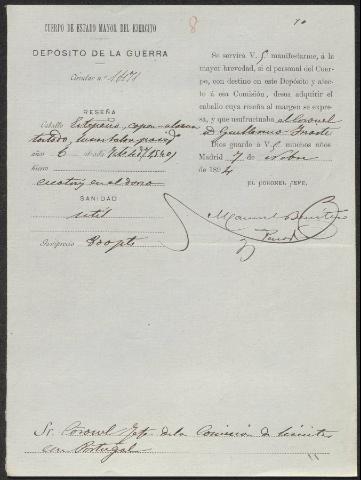 8
CUERPO DE ESTADO MAYOR DEL EJERCITO
DEPÓSITO DE LA GUERRA
Circular n.º 1671
RESEÑA
Caballo
tostado,
años 6
Hierro
en el dorso
SANIDAD
util
Justiprecio 800 pts
Se servirá V. S manifestarme, á la
mayor brevedad, si el personal del Cuer-
po, con destino en este Depósito y afec-
to á esa Comisión, desea adquirir el
caballo cuya reseña al margen se expre-
sa, y que usufructuaba el Coronel
D Guillermo
Dios guarde á V. S muchos años
Madrid 7 de Nobre
de 1894
EL CORONEL JEFE,
Manuel Benitez
y
Sr. Coronel Jefe de la Comisión de límites
con Portugal